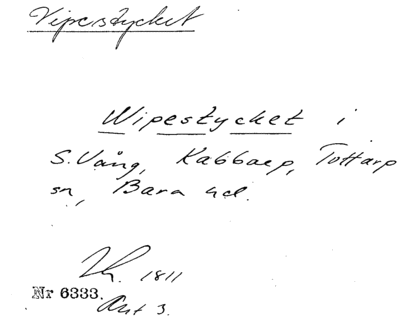 Viperstycket
Wipestycket i
S. Vång, Kabbarp, Tottarp
sn, Bara hd.
1811
Nr 6333.
Akt 3.